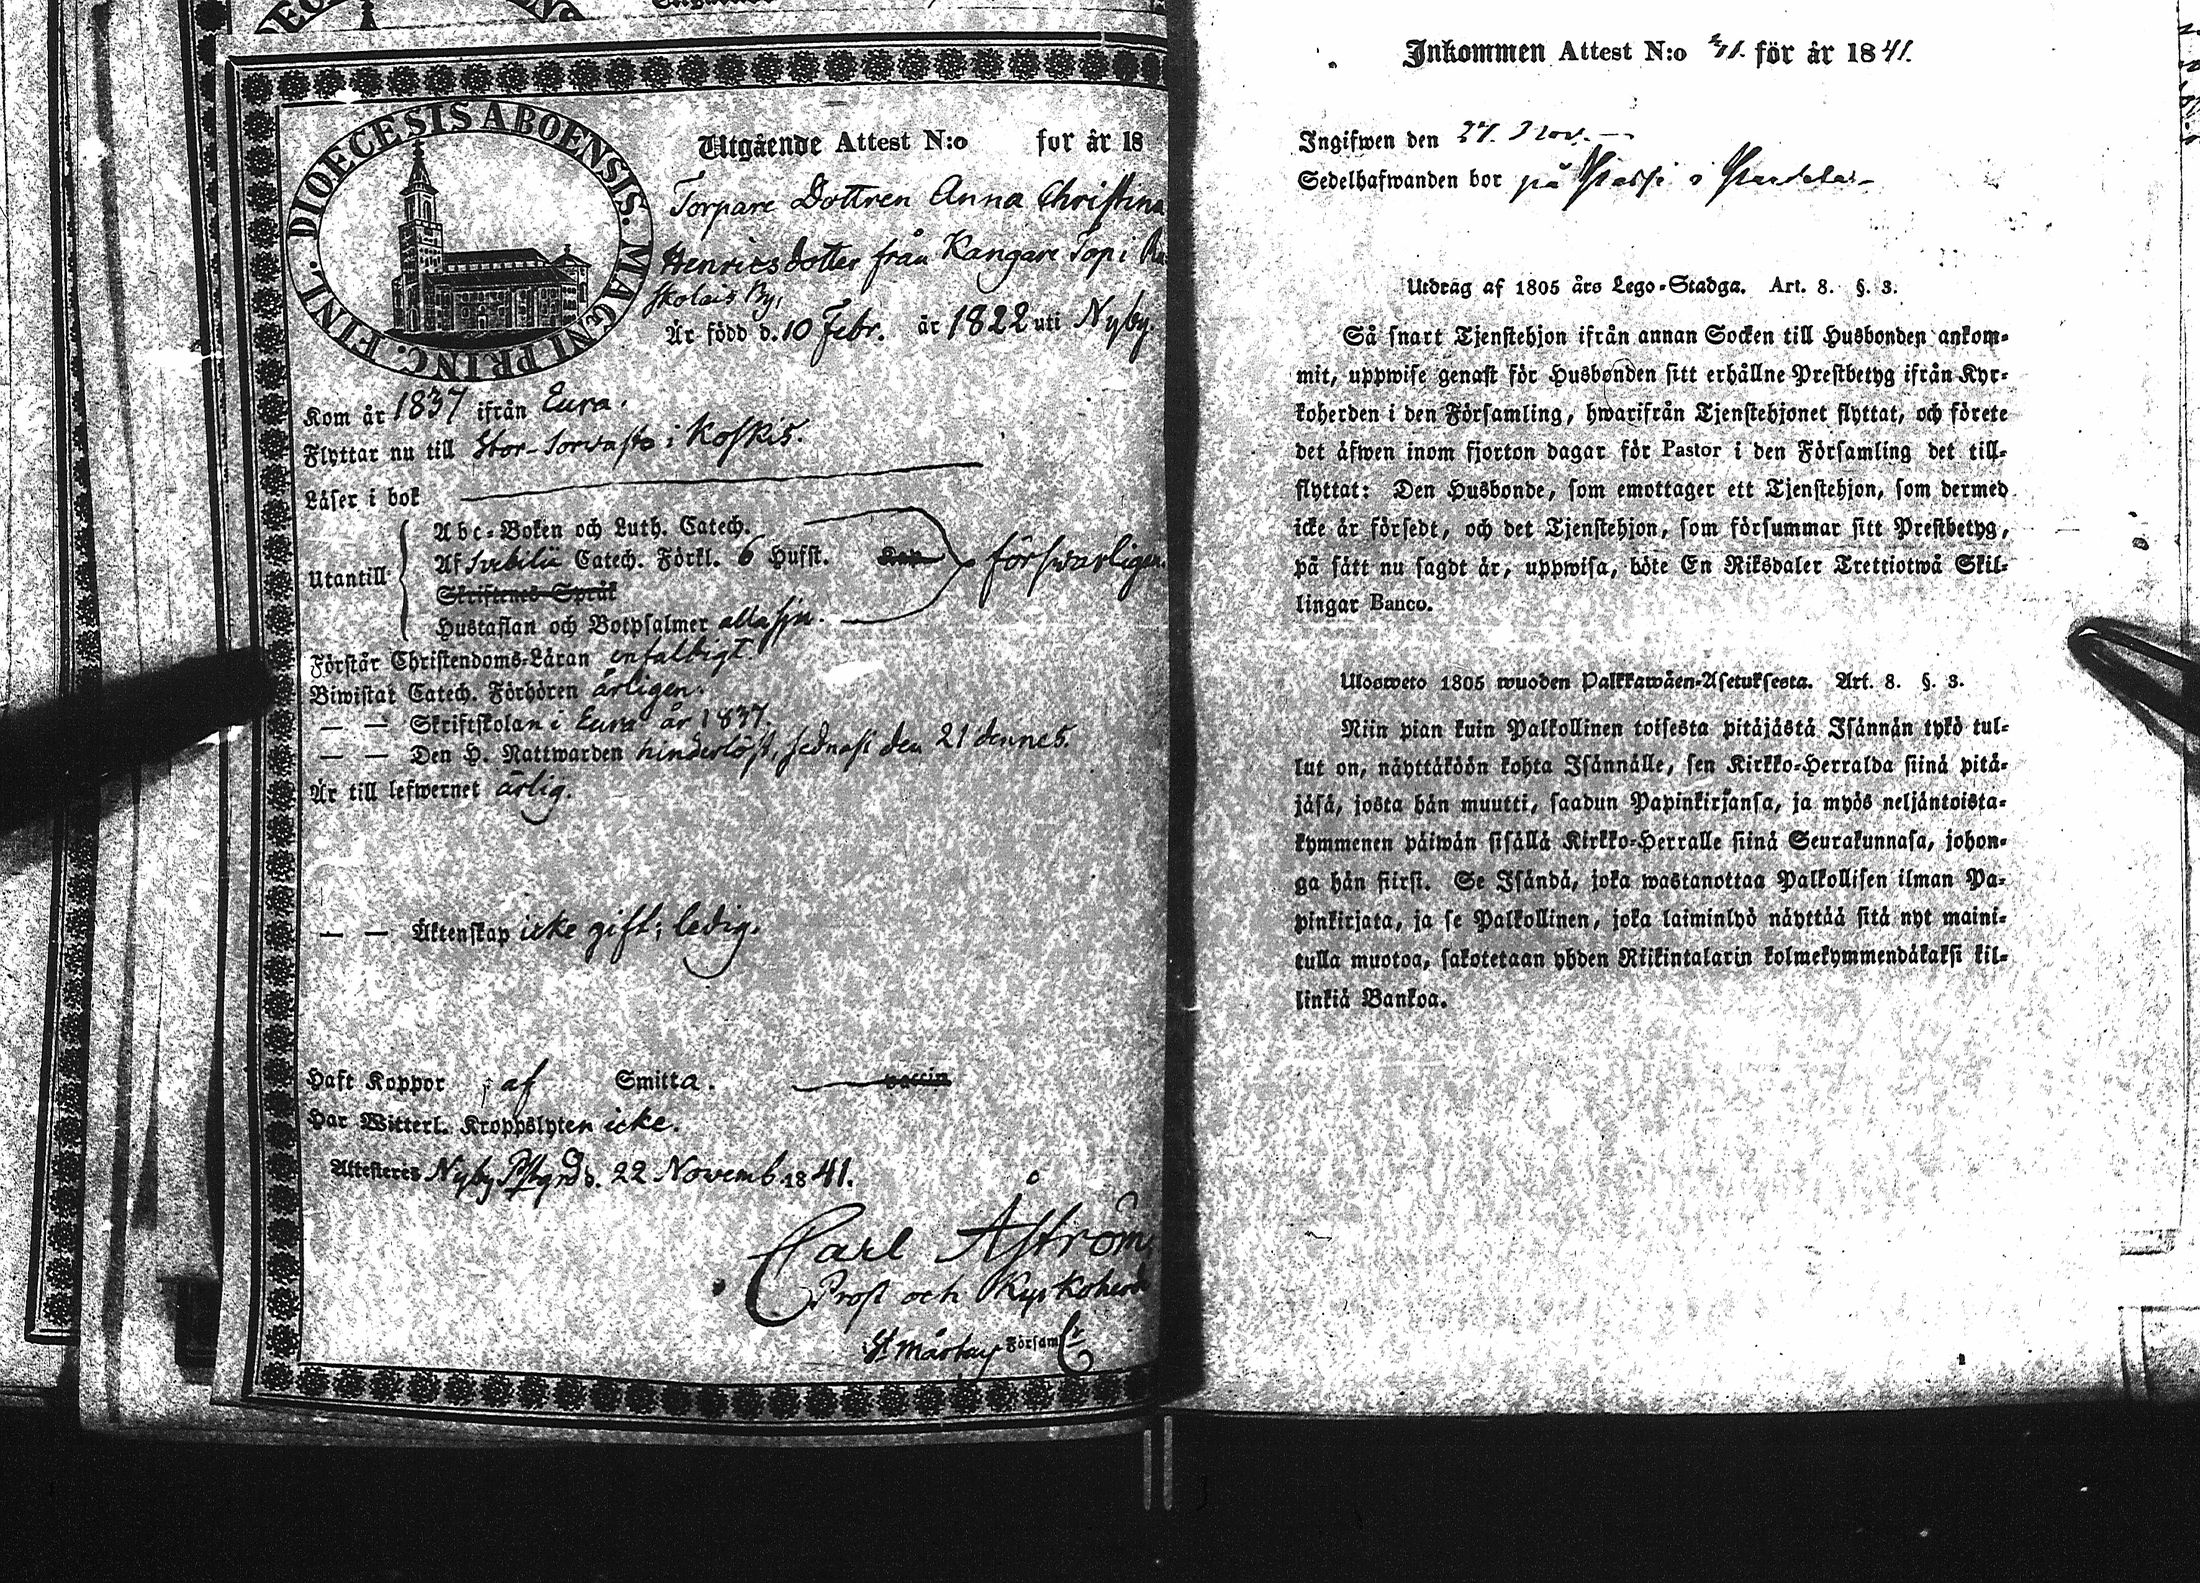 DIOECESIS ABOENSIS. MAGNI PRINC. FINL.
Utgående Attest N:o för år 18
Torpare Dottren Anna Christina
Henricsdotter från Kangare Torp i
skolais By,
Är född d. 10 Febr. år 1822 uti Nyby.
Kom år 1837 ifrån Eura.
Flyttar nu till Stor-Sorvasto i Koskis.
Läser i bok
Utantill
Abc-Boken och Luth. Catech.
Af Svebilii Catech. Förkl. 6 Hufst. Kap försvarligen.
Skriftenes Språk
Hustaflan och Botpsalmer alla sju.
Förstår Christendoms-Läran enfaldigt.
Biwistat Catech. Förhören årligen.
— — Skriftskolan i Eura år 1837.
— — Den H. Nattwarden hinderlöst, sednast den 21 dennes.
Är till lefwernet ärlig.
— — Äktenskap icke gift; ledig.
Haft Koppor af Smitta. vaccin
Har Witterl. Kroppslyten icke.
Attesteres Nyby Pstgrd d. 22 Novemb. 1841.
Carl Åström,
Prost och Kyrkoherd
St Mårtens Församl
Inkommen Attest N:o 41. för år 1841.
Ingifwen den 27. Nov.
Sedelhafwanden bor på i
Utdrag af 1805 års Lego-Stadga. Art. 8. §. 3.
Så snart Tjenstehjon ifrån annan Socken till Husbonden ankom-
mit, uppwise genast för Husbonden sitt erhållne Prestbetyg ifrån Kyr-
koherden i den Församling, hwarifrån Tjenstehjonet flyttat, och förete
det äfwen inom fjorton dagar för Pastor i den Församling det till-
flyttat: Den Husbonde, som emottager ett Tjenstehjon, som dermed
icke är försedt, och det Tjenstehjon, som försummar sitt Prestbetyg,
på sätt nu sagdt är, uppwisa, böte En Riksdaler Trettiotwå Skil-
lingar Banco.
Ulosweto 1805 wuoden Palkkawäen-Asetuksesta. Art. 8. §. 3.
Niin pian kuin Palkollinen toisesta pitäjästä Isännän tykö tul-
lut on, näyttäköön kohta Isännälle, sen Kirkko-Herralda siinä pitä-
jäsä, josta hän muutti, saadun Papinkirjansa, ja myös neljäntoista-
kymmenen päiwän sisällä Kirkko-Herralle siinä Seurakunnasa, johon-
ga hän siirsi. Se Isändä, joka wastanottaa Palkollisen ilman Pa-
pinkirjata, ja se Palkollinen, joka laiminlyö näyttää sitä nyt maini-
tulla muotoa, sakotetaan yhden Riikintalarin kolmekymmendäkaksi kil-
linkiä Bankoa.